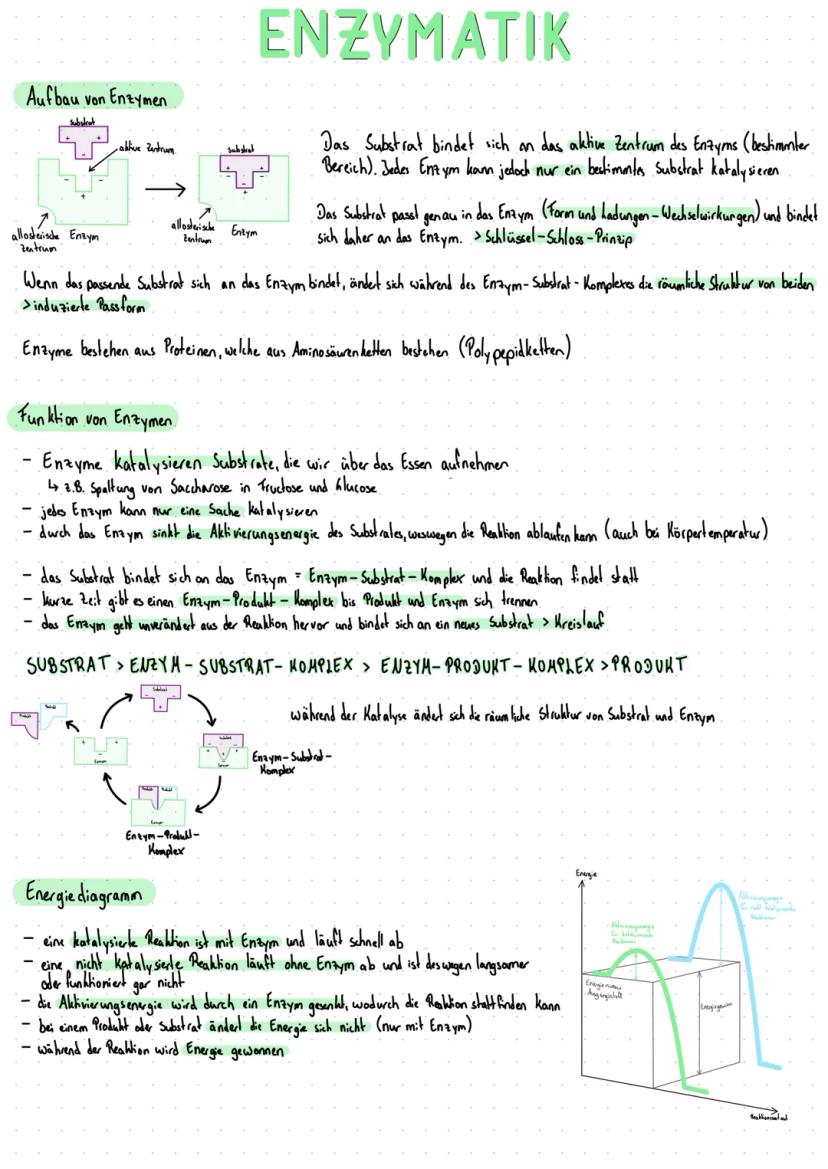 ENZYMATIK
Aufbau von Enzymen
Substrat
aktive Zentrum
allosterische Zentrum
Enzym
substrat
allosterische Zentrum
Enzym
Das Substrat bindet sich an das aktive Zentrum des Enzyms (bestimmter
Bereich). Jedes Enzym kann jedoch nur ein bestimmtes Substrat katalysieren
Das Substrat passt genau in das Enzym (Form und Ladungen-Wechselwirkungen) und bindet
sich daher an das Enzym. > Schlüssel-Schloss-Prinzip
Wenn das passende Substrat sich an das Enzym bindet, ändert sich während des Enzym-Substrat-Komplexes die räumliche Struktur von beiden
> induzierte Passform
Enzyme bestehen aus Proteinen, welche aus Aminosäurenketten bestehen (Polypepidketten)
Funktion von Enzymen
- Enzyme katalysieren Substrate, die wir über das Essen aufnehmen
↳ z.B. Spaltung von Saccharose in Fructose und Glucose
- jedes Enzym kann nur eine Sache katalysieren
- durch das Enzym sinkt die Aktivierungsenergie des Substrates, weswegen die Reaktion ablaufen kann (auch bei Körpertemperatur)
- das Substrat bindet sich an das Enzym = Enzym-Substrat-Komplex und die Reaktion findet statt
- kurze Zeit gibt es einen Enzym-Produkt-Komplex bis Produkt und Enzym sich trennen
- das Enzym geht unverändert aus der Reaktion hervor und bindet sich an ein neues Substrat > Kreislauf
SUBSTRAT > ENZYM-SUBSTRAT-KOMPLEX > ENZYM-PRODUKT-KOMPLEX > PRODUKT
Substrat
Produkt
Produkt
während der Katalyse ändert sich die räumliche Struktur von Substrat und Enzym
Enzym
Substrat
Enzym
Enzym-Substrat-
Komplex
Produkt
Produkt
Enzym
Enzym-Produkt-
Komplex
Energiediagramm
- eine katalysierte Reaktion ist mit Enzym und läuft schnell ab
- eine nicht katalysierte Reaktion läuft ohne Enzym ab und ist deswegen langsamer
oder funktioniert gar nicht
- die Aktivierungsenergie wird durch ein Enzym gesenkt, wodurch die Reaktion stattfinden kann
- bei einem Produkt oder Substrat ändert die Energie sich nicht (nur mit Enzym)
- während der Reaktion wird Energie gewonnen
Energie
Aktivierungsenergie
für nicht katalysierte
Reaktionen
Aktivierungsenergie
für katalysierte
Reaktionen
Energieniveau
Ausgangsstoff
Energiegewinn
Reaktionsverlauf